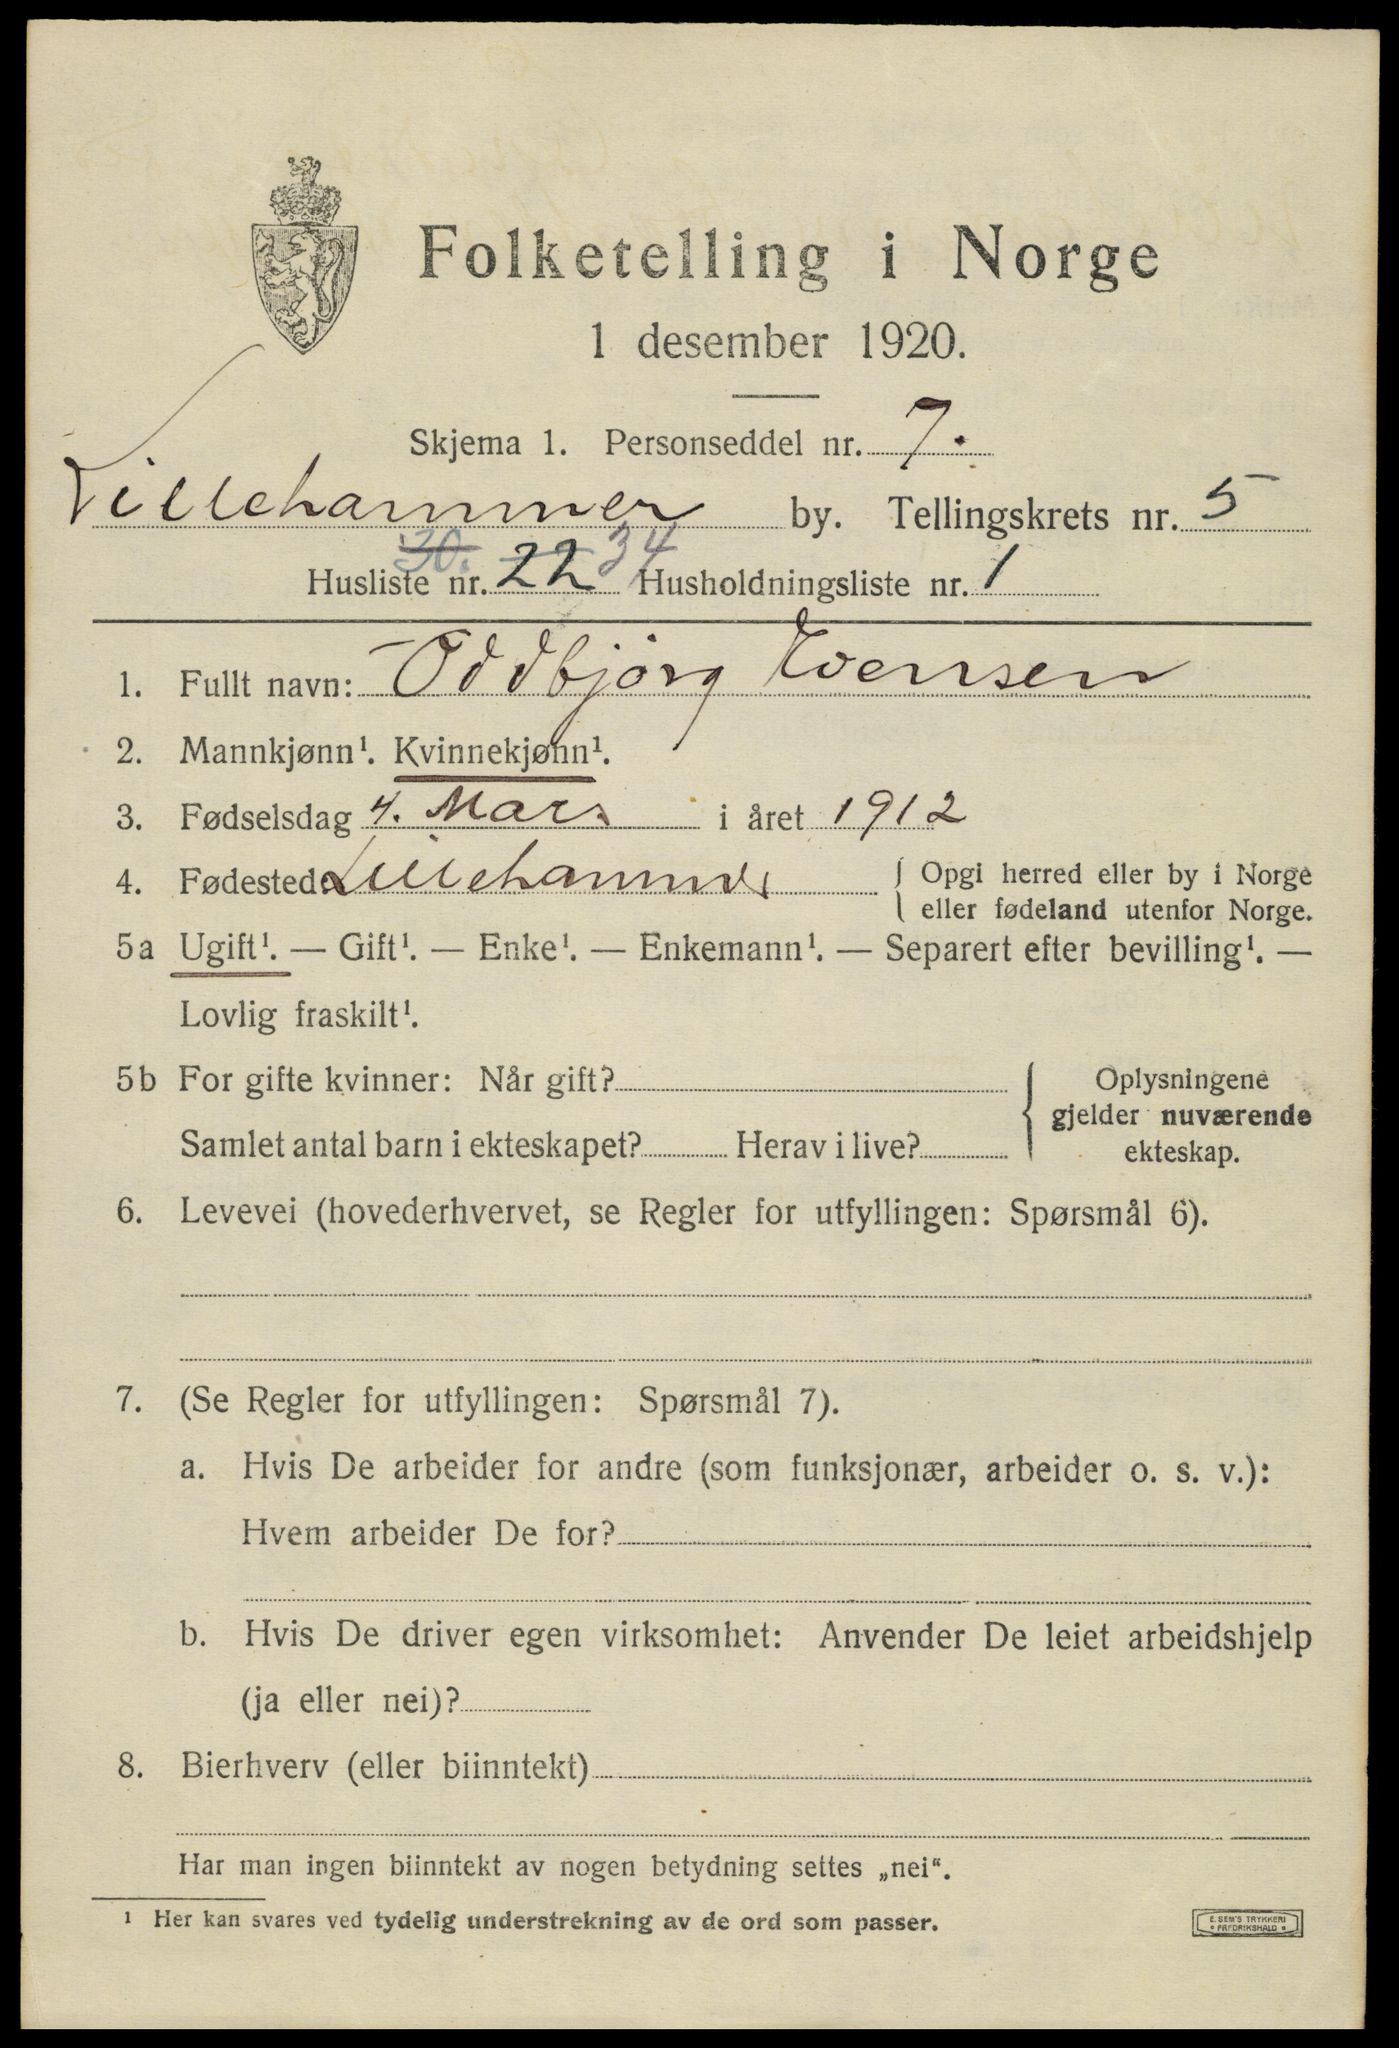 Folketelling i Norge
1 desember 1920.
Skjema 1. Personseddel nr. 7.
Lillehammer by. Tellingskrets nr. 5
30. 34
Husliste nr. 22 Husholdningsliste nr. 1
1. Fullt navn: Oddbjørg Evensen
2. Mannkjønn¹. Kvinnekjønn¹.
3. Fødselsdag 4. Mars i året 1912
4. Fødested Lillehammer { Opgi herred eller by i Norge
eller fødeland utenfor Norge.
5a Ugift¹. — Gift¹. — Enke¹. — Enkemann¹. — Separert efter bevilling¹. —
Lovlig fraskilt¹.
5b For gifte kvinner: Når gift? { Oplysningene
gjelder nuværende
Samlet antal barn i ekteskapet? Herav i live? ekteskap.
6. Levevei (hovederhvervet, se Regler for utfyllingen: Spørsmål 6).
7. (Se Regler for utfyllingen: Spørsmål 7).
a. Hvis De arbeider for andre (som funksjonær, arbeider o. s. v.):
Hvem arbeider De for?
b. Hvis De driver egen virksomhet: Anvender De leiet arbeidshjelp
(ja eller nei)?
8. Bierhverv (eller biinntekt)
Har man ingen biinntekt av nogen betydning settes „nei“.
¹ Her kan svares ved tydelig understrekning av de ord som passer.
E. SEM'S TRYKKERI
• FREDRIKSHALD •